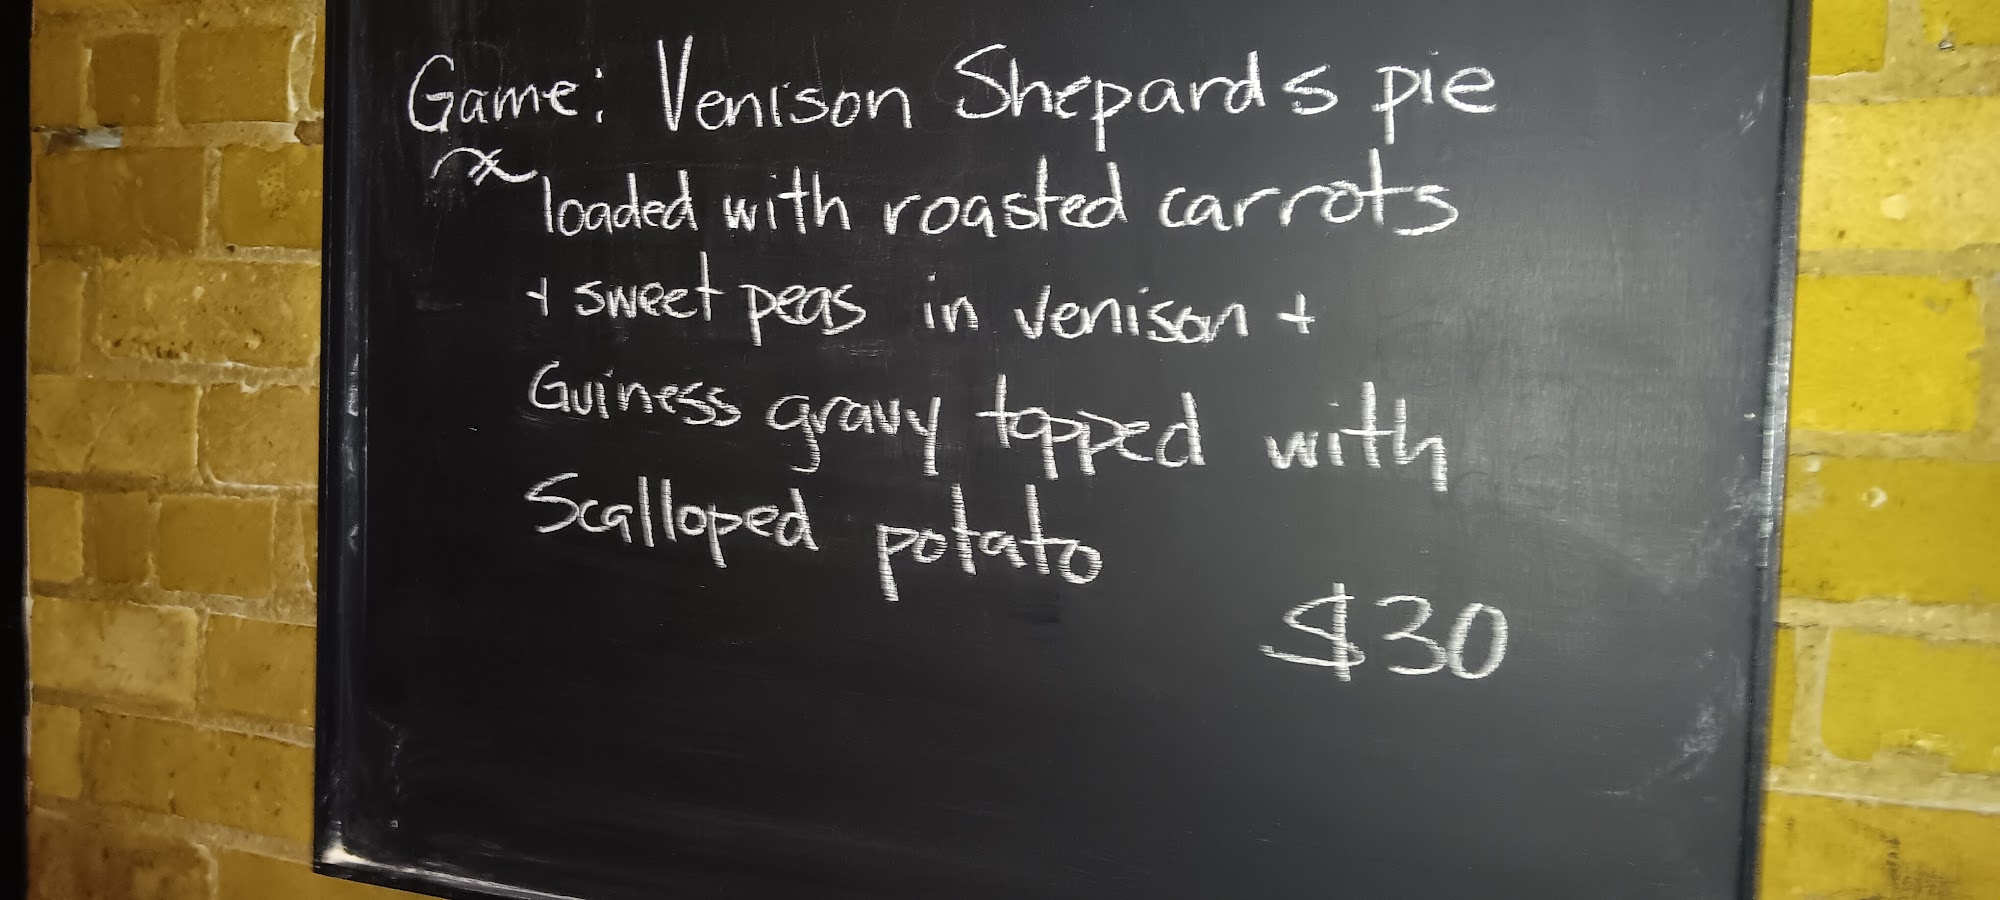 Game: Venison Shepards pie
loaded with roasted carrots
+ sweet peas in venison +
Guiness gravy topped with
Scalloped potato
$30